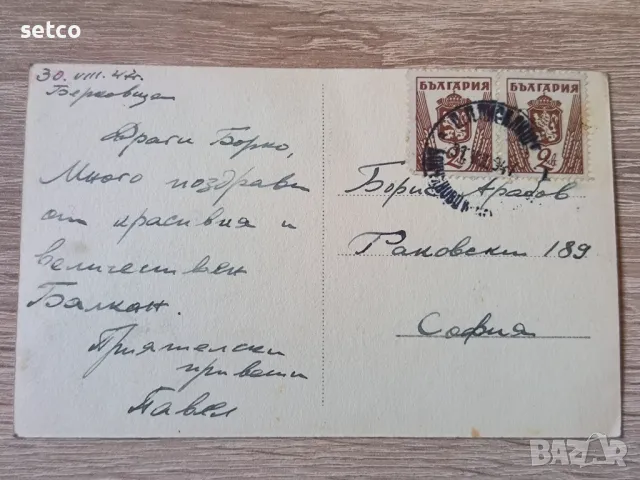 setco
30. VIII. 47г.
Берковица
Драги Борко,
Много поздрави
от красивия и
величествен
Балкан.
Приятелски
привети
Павел
БЪЛГАРИЯ
БЪЛГАРИЯ
2
2
Борис Арабов
Раковски 189
София
BAZAR